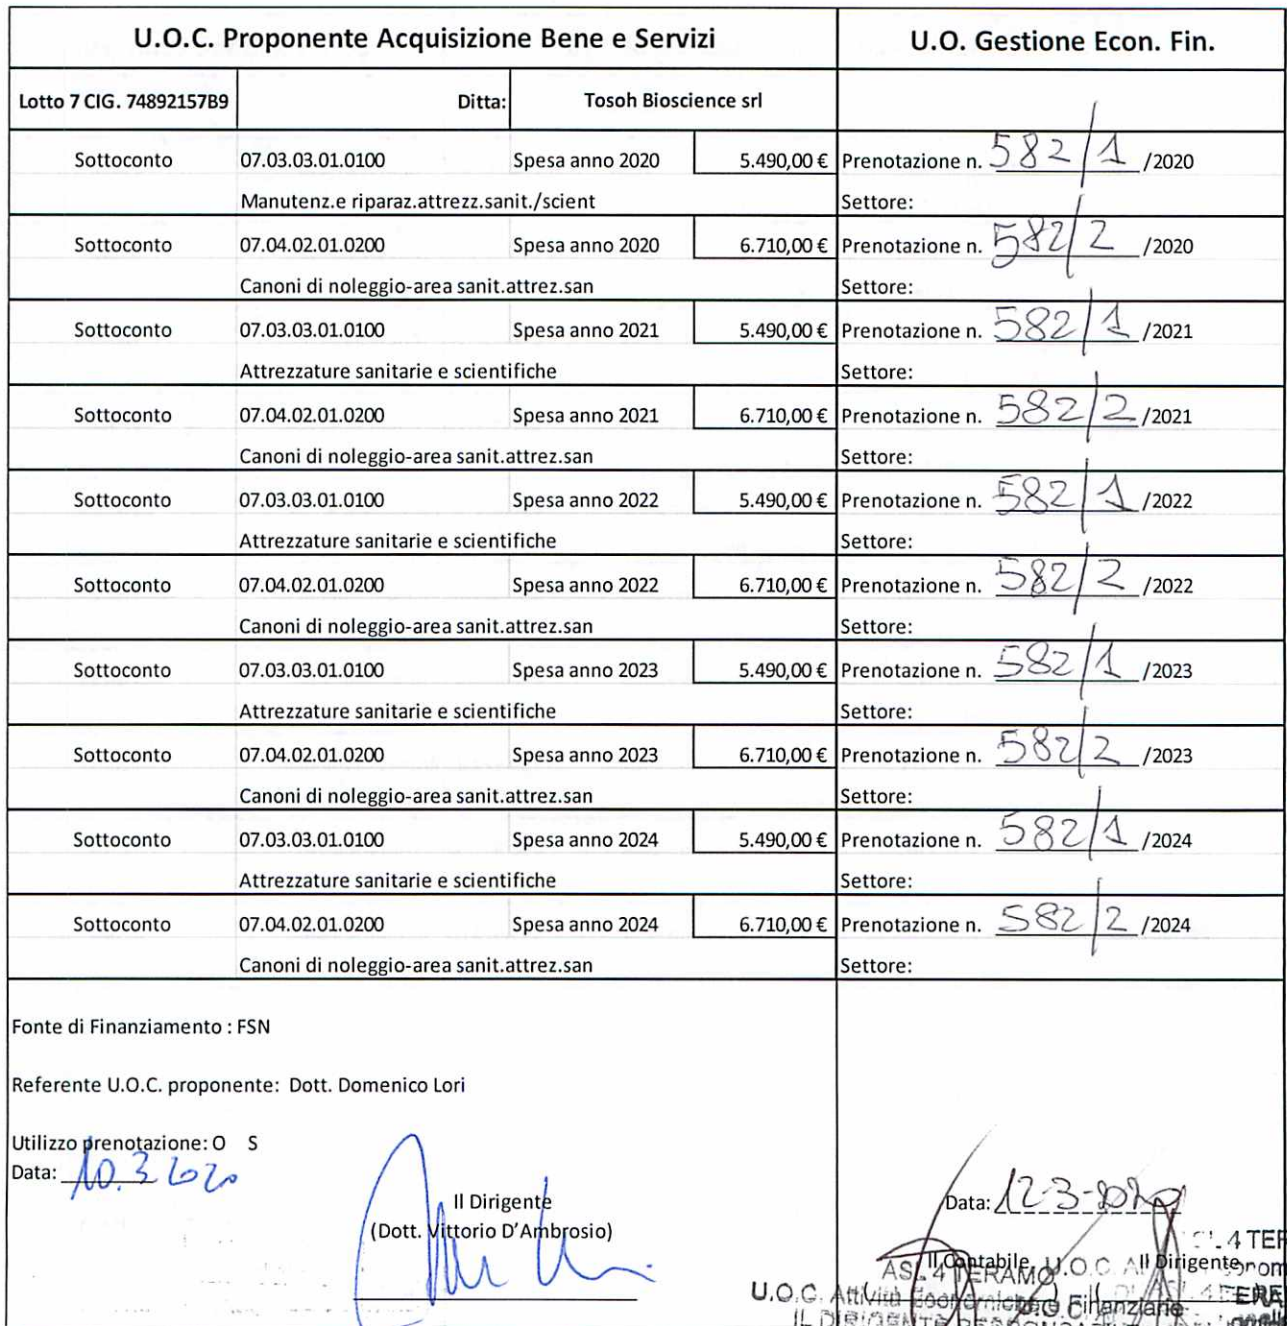 U.O.C. Proponente Acquisizione Bene e Servizi U.O. Gestione Econ. Fin.
Lotto 7 CIG. 74892157B9 Ditta: Tosoh Bioscience srl
Sottoconto 07.03.03.01.0100 Spesa anno 2020 5.490,00 € Prenotazione n. 582/1 /2020
Manutenz.e riparaz.attrezz.sanit./scient Settore:
Sottoconto 07.04.02.01.0200 Spesa anno 2020 6.710,00 € Prenotazione n. 582/2 /2020
Canoni di noleggio-area sanit.attrez.san Settore:
Sottoconto 07.03.03.01.0100 Spesa anno 2021 5.490,00 € Prenotazione n. 582/1 /2021
Attrezzature sanitarie e scientifiche Settore:
Sottoconto 07.04.02.01.0200 Spesa anno 2021 6.710,00 € Prenotazione n. 582/2 /2021
Canoni di noleggio-area sanit.attrez.san Settore:
Sottoconto 07.03.03.01.0100 Spesa anno 2022 5.490,00 € Prenotazione n. 582/1 /2022
Attrezzature sanitarie e scientifiche Settore:
Sottoconto 07.04.02.01.0200 Spesa anno 2022 6.710,00 € Prenotazione n. 582/2 /2022
Canoni di noleggio-area sanit.attrez.san Settore:
Sottoconto 07.03.03.01.0100 Spesa anno 2023 5.490,00 € Prenotazione n. 582/1 /2023
Attrezzature sanitarie e scientifiche Settore:
Sottoconto 07.04.02.01.0200 Spesa anno 2023 6.710,00 € Prenotazione n. 582/2 /2023
Canoni di noleggio-area sanit.attrez.san Settore:
Sottoconto 07.03.03.01.0100 Spesa anno 2024 5.490,00 € Prenotazione n. 582/1 /2024
Attrezzature sanitarie e scientifiche Settore:
Sottoconto 07.04.02.01.0200 Spesa anno 2024 6.710,00 € Prenotazione n. 582/2 /2024
Canoni di noleggio-area sanit.attrez.san Settore:
Fonte di Finanziamento : FSN
Referente U.O.C. proponente: Dott. Domenico Lori
Utilizzo prenotazione: O S
Data: 10.3 2020
Il Dirigente
(Dott. Vittorio D'Ambrosio)
Data: 12-3-2020
Il Contabile Il Dirigente
ASL 4 TERAMO
U.O.C. Attività Economiche